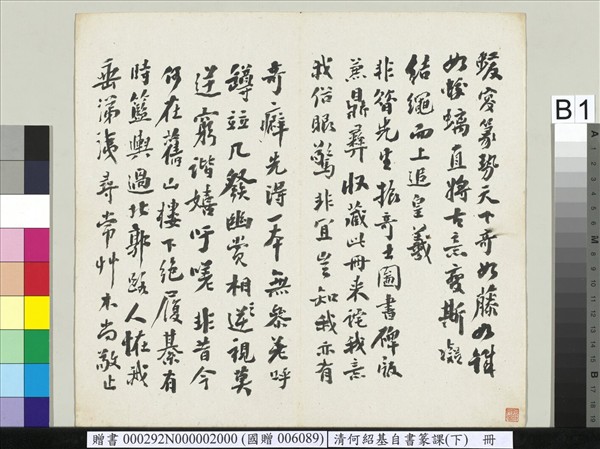 蝯容篆勢天下奇如藤如銕
如螭直將古意變斯
結繩而上追皇羲
非簪先生振奇士圖書碑版
兼鼎彝收藏此冊來詫我意
我俗眼驚非宜豈知我亦有
奇癖先得一本無參差呼
罇竝几發幽賞相逆視莫
逆窮諧嬉吁嗟非昔今
何在舊山樓下絕履綦有
時籃輿過北郭路人怪我
垂涕洟尋常艸木尚敬止
B1
贈書 000292N000002000 (國贈 006089)
清何紹基自書篆課(下) 冊